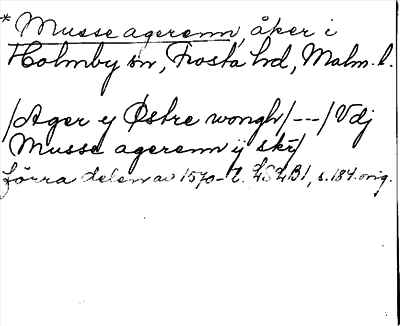 * Musse agerenn, åker i
Holmby sn, Frosta hd, Malm. l.
/Ager y Østre wongh/---/Vdj
Musse agerenn ij skr/
förra delen av 1570-t. LSLB1, s. 184. orig.